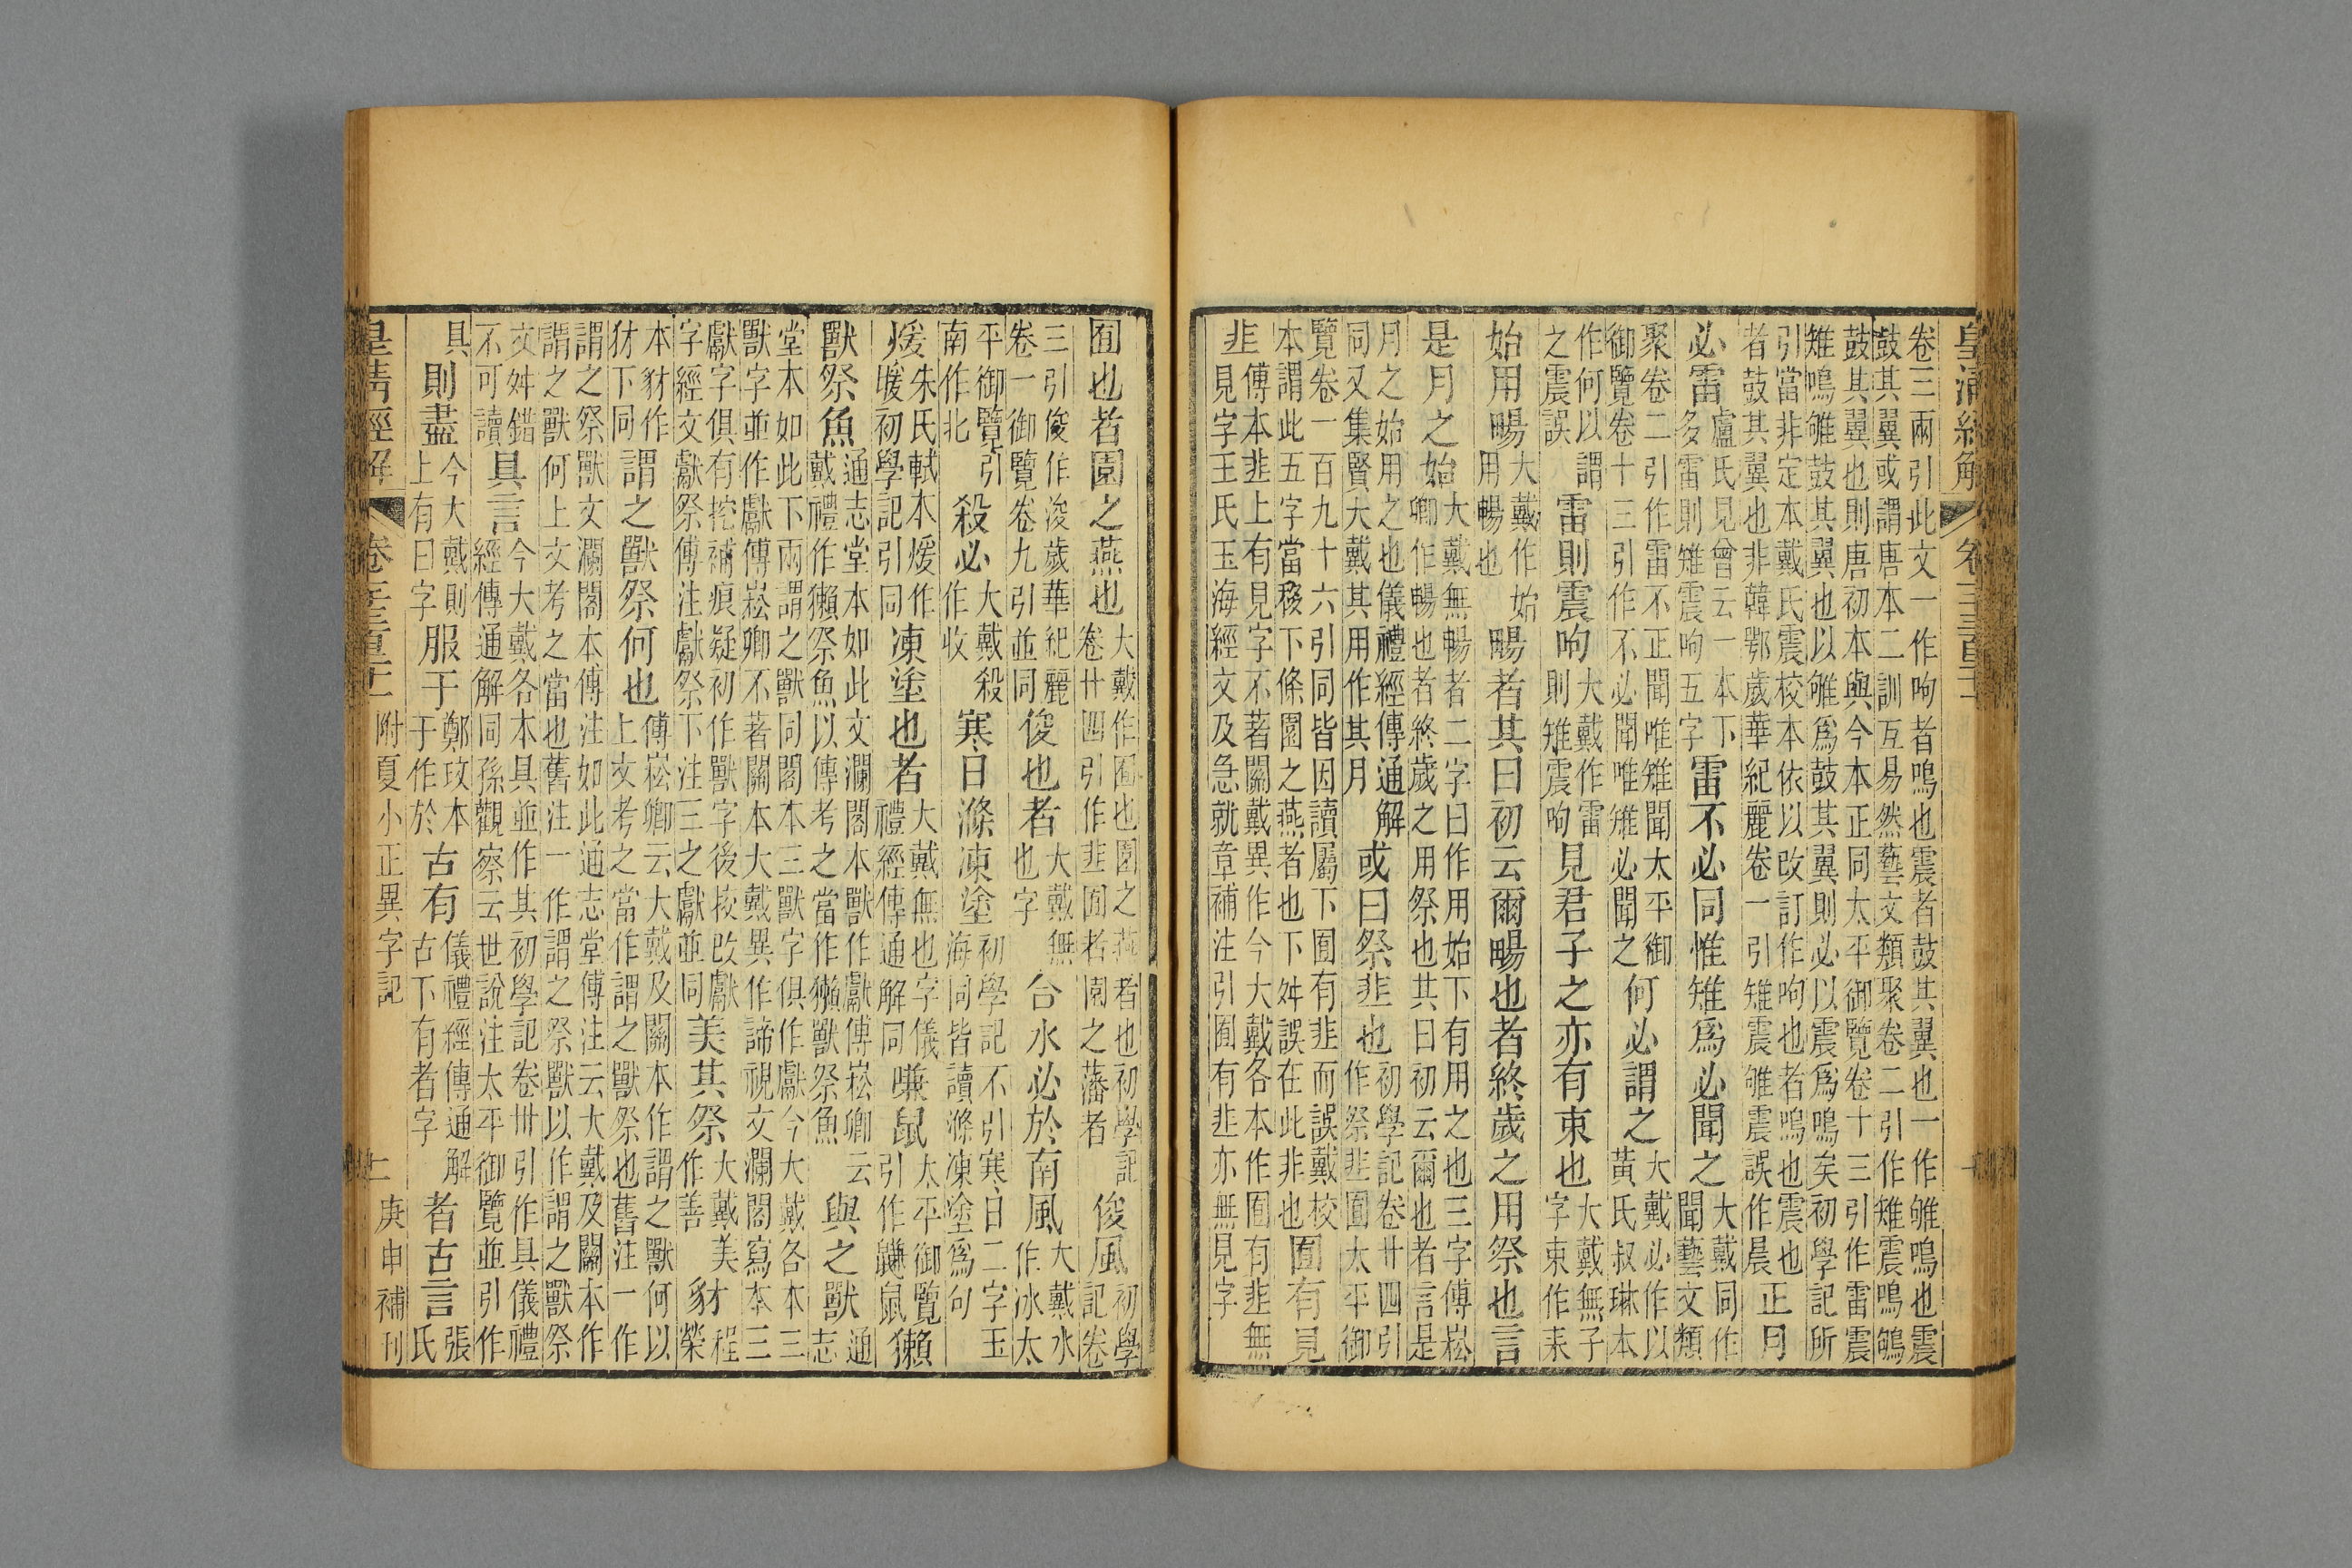 皇清經解
卷三兩引此文一作呴者鳴也震者鼓其翼也一作雊鳴也震
鼓其翼或謂唐本二訓互易然藝文類聚卷二引作雉震鳴鴝
鼓其翼也則唐初本與今本正同太平御覽卷十三引作雷震
雉鳴雊鼓其翼也以雊爲鼓其翼則必以震爲鳴矣初學記所
引當非定本戴氏震校本依以改訂作呴也者鳴也震也
者鼓其翼也非韓鄂歲華紀麗卷一引雉震雊震誤作晨
正月
必雷
盧氏見曾云一本下
多雷則雉震呴五字
雷不必同惟雉爲必聞之
大戴同作
聞藝文類
聚卷二引作雷不正聞唯雉聞太平御
御覽卷十三引作不必聞唯雉必聞之
何必謂之
大戴必作以
黃氏叔琳本
作何以謂
之震誤
雷則震呴
大戴作雷
則雉震呴
見君子之亦有束也
大戴無子
字束作耒
始用暢
大戴作始
用暢也
暢者其曰初云爾暢也者終歲之用祭也言
是月之始
大戴無暢者二字曰作用始下有用之也三字傅崧
卿作暢也者終歲之用祭也其曰初云爾也者言是
月之始用之也儀禮經傳通解
同又集賢大戴其用作其月
或曰祭韭也
初學記卷廿四引
作祭韭囿太平御
覽卷一百九十六引同皆因讀屬下囿有韭而誤戴校
本謂此五字當移下條園之燕者也下舛誤在此非也
囿有見
韭
傅本韭上有見字不著關戴異作今大戴各本作囿有韭無
見字王氏玉海經文及急就章補注引囿有韭亦無見字
囿也者園之燕也
大戴作囿也園之燕者也初學記
卷廿四引作韭囿者園之藩者
俊風
初學
記卷
三引俊作浚歲華紀麗
卷一御覽卷九引並同
俊也者
大戴無
也字
合水必於南風
大戴水
作冰太
平御覽引
南作北
殺必
大戴殺
作收
寒日滌凍塗
初學記不引寒日二字玉
海同皆讀滌凍塗爲句
煖
朱氏軾本煖作
暖初學記引同
凍塗也者
大戴無也字儀
禮經傳通解同
嗛鼠
太平御覽
引作鼸鼠
獺
獸祭魚
通志堂本如此文瀾閣本獸作獻傅崧卿云
戴禮作獺祭魚以傳考之當作獺獸祭魚
與之獸
通
志
堂本如此下兩謂之獸同閣本三獸字俱作獻今大戴各本三
獸字並作獻傅崧卿不著關本大戴異作諦視文瀾閣寫本三
獻字俱有挖補痕疑初作獸字後挍改獻
字經文獻祭傅注獻祭下注三之獻並同
美其祭
大戴美
作善
豺
程
榮
本豺作
犲下同
謂之獸祭何也
傅崧卿云大戴及關本作謂之獸何以
上文考之當作謂之獸祭也舊注一作
謂之祭獸文瀾閣本傅注如此通志堂傅注云大戴及關本作
謂之獸何上文考之當也舊注一作謂之祭獸以作謂之獸祭
文舛錯
不可讀
具言
今大戴各本具並作其初學記卷卅引作具儀禮
經傳通解同孫觀察云世說注太平御覽並引作
具
則盡
今大戴則
上有曰字
服于
鄭玫本
于作於
古有
儀禮經傳通解
古下有者字
者古言
張
氏
附夏小正異字記
二
庚申補刊